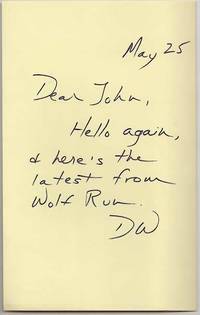 May 25
Dear John,
Hello again,
& here's the
latest from
Wolf Run.
DW